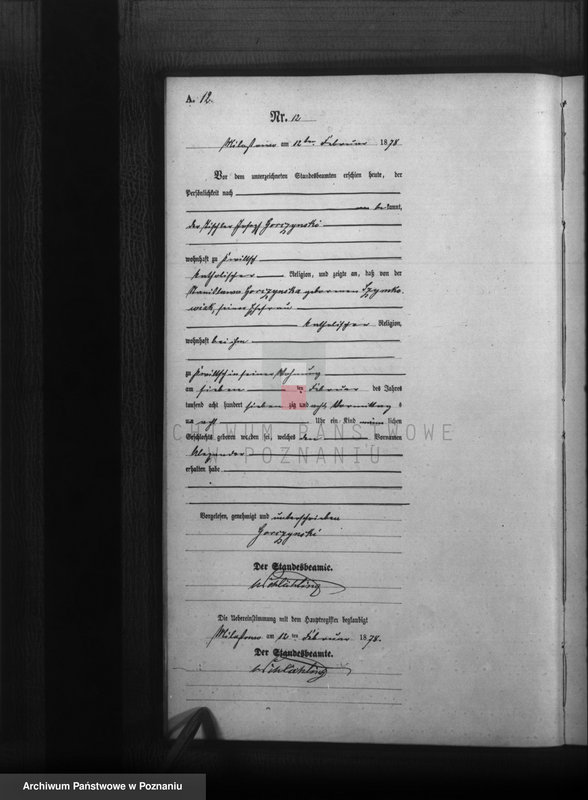 A. 12.
Nr. 12
am 12ten Februar 1878
Vor dem unterzeichneten Standesbeamten erschien heute, der
Persönlichkeit nach
be kannt,
der Tischler Joseph Gorczynski
wohnhaft zu
katholischer Religion, und zeigte an, daß von der
Stanislawa Gorczynska geborenen
seiner Ehefrau
katholischer Religion,
wohnhaft bei ihm
zu in seiner Wohnung
am sieben ten Februar des Jahres
tausend acht hundert sieben zig und acht Vormittags
um acht Uhr ein Kind männ lichen
Geschlechts geboren worden sei, welches den Vornamen
Alexander
erhalten habe
Vorgelesen, genehmigt und unterschrieben
Gorczynski
Der Standesbeamte.
Die Uebereinstimmung mit dem Hauptregister beglaubigt
am 12 ten Februar 1878.
Der Standesbeamte.
ARCHIWUM PAŃSTWOWE
W POZNANIU
Archiwum Państwowe w Poznaniu